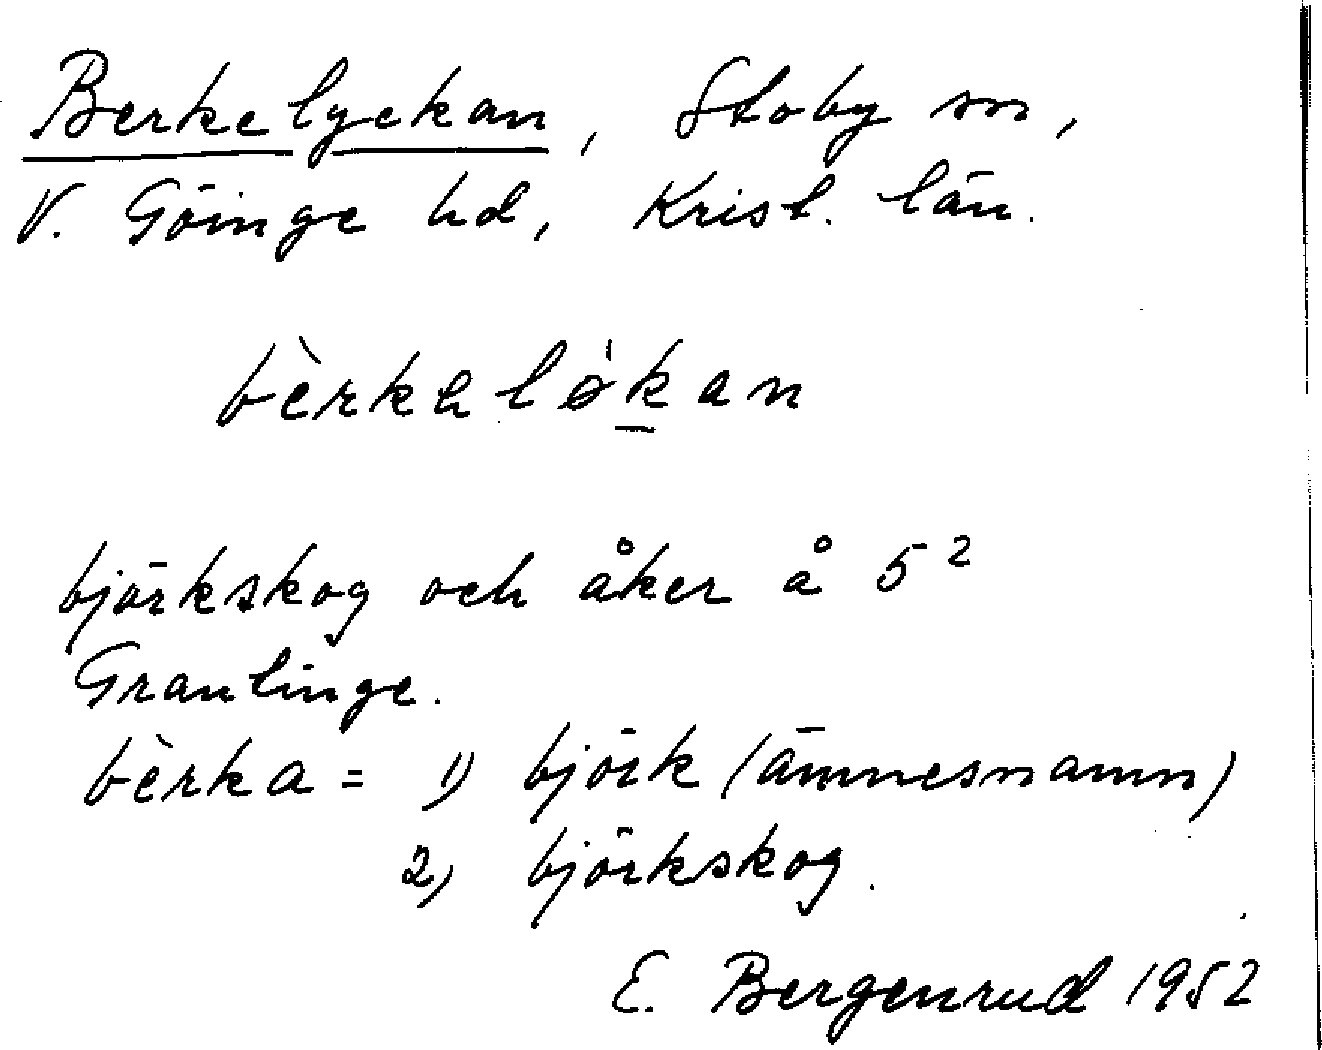 Berkelyckan, Stoby sn,
V. Göinge hd, Krist. län.
bèrkalø̀kan
björkskog och åker å 5²
Grantinge.
bèrka = 1) björk (ämnesnamn)
2) björkskog.
E. Bergenrud 1952